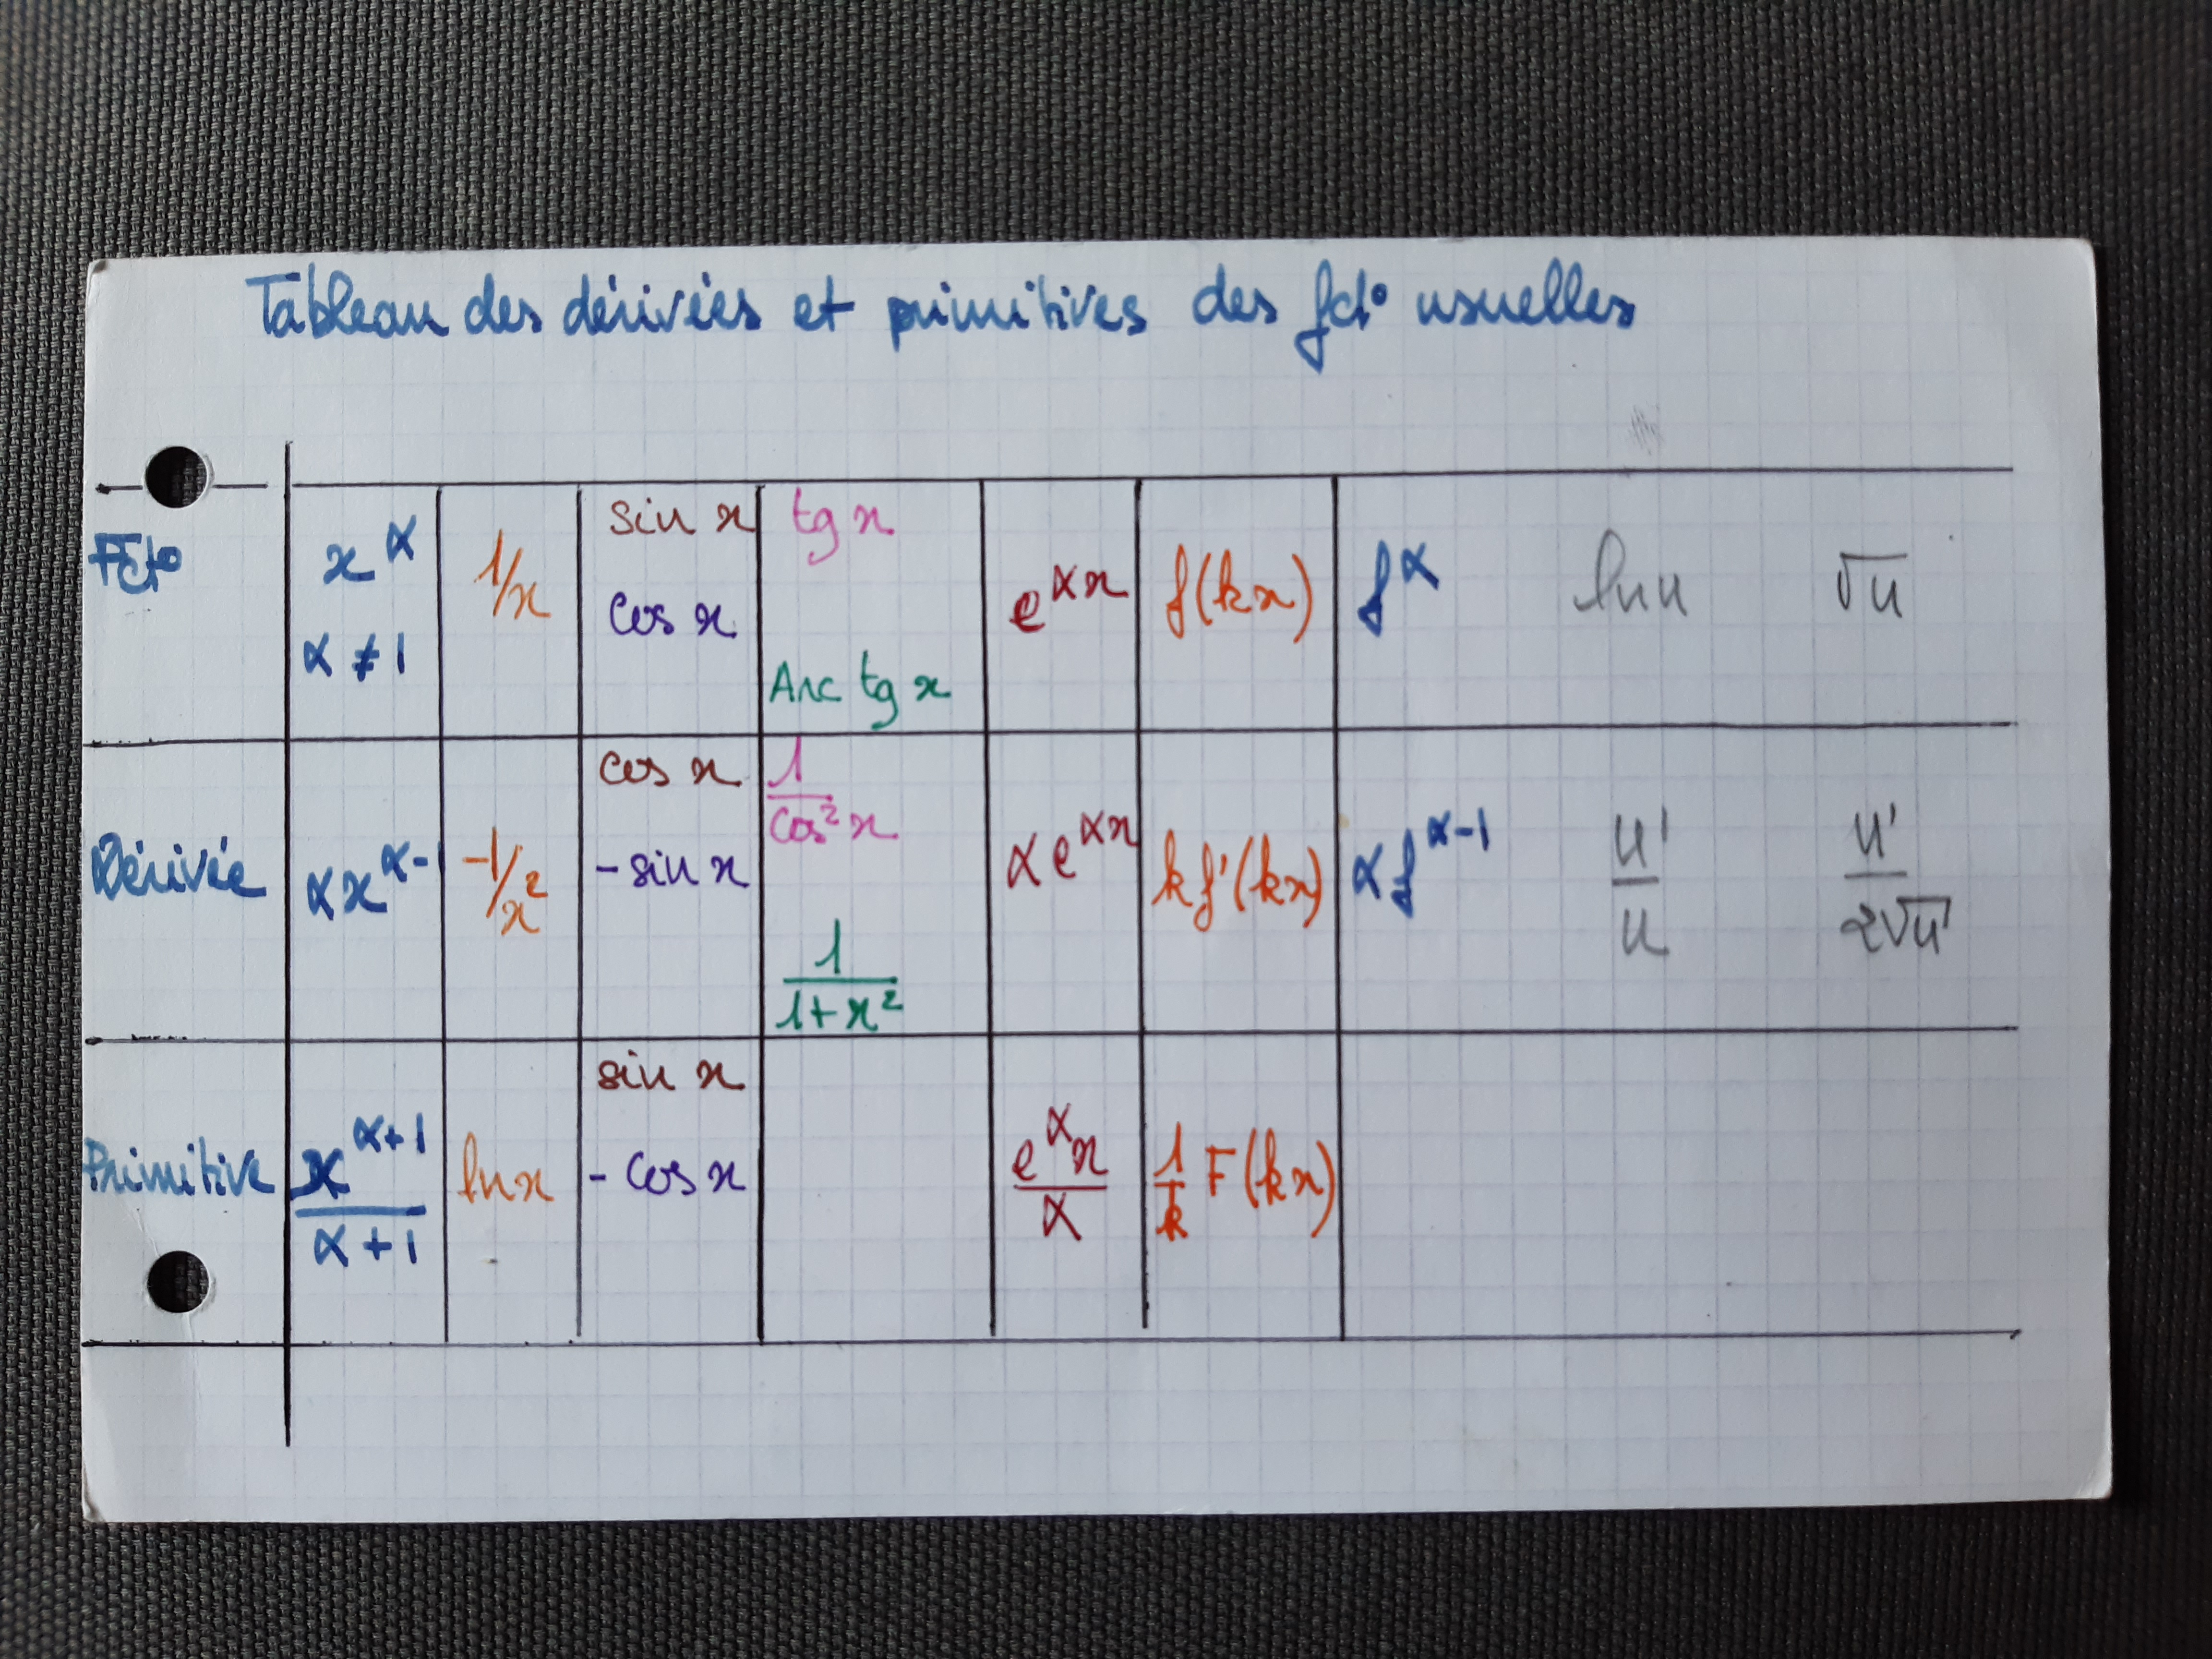 Tableau des dérivées et primitives des fct° usuelles
Fct° x^α α ≠ 1 1/x sin x cos x tg x Arc tg x e^αx f(kx) f^α ln u √u
Dérivée αx^α-1 -1/x² cos x -sin x 1/cos²x 1/1+x² αe^αx kf'(kx) αf^α-1 u'/u u'/2√u
Primitive x^α+1/α+1 ln x sin x -cos x e^αx/α 1/k F(kx)